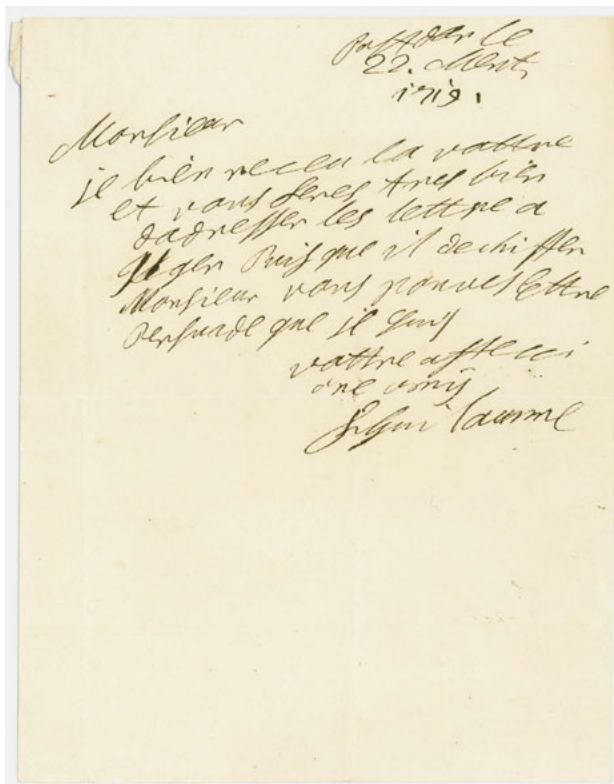 Postdam le
22. Mertz
1719.
Monsieur
je bien receu la vottre
et vous feres tres bien
dadresser les lettre a
Ilgen Puis que il dechiffer
Monsieur vous pouves Ettre
Persuade que je suis
vottre affecci
one amij
Fr Guillaume